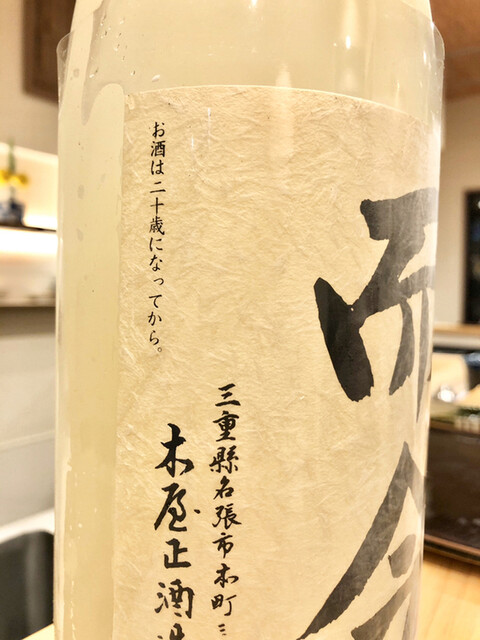 而今
三重縣名張市本町三
木屋正酒造
お酒は二十歳になってから。